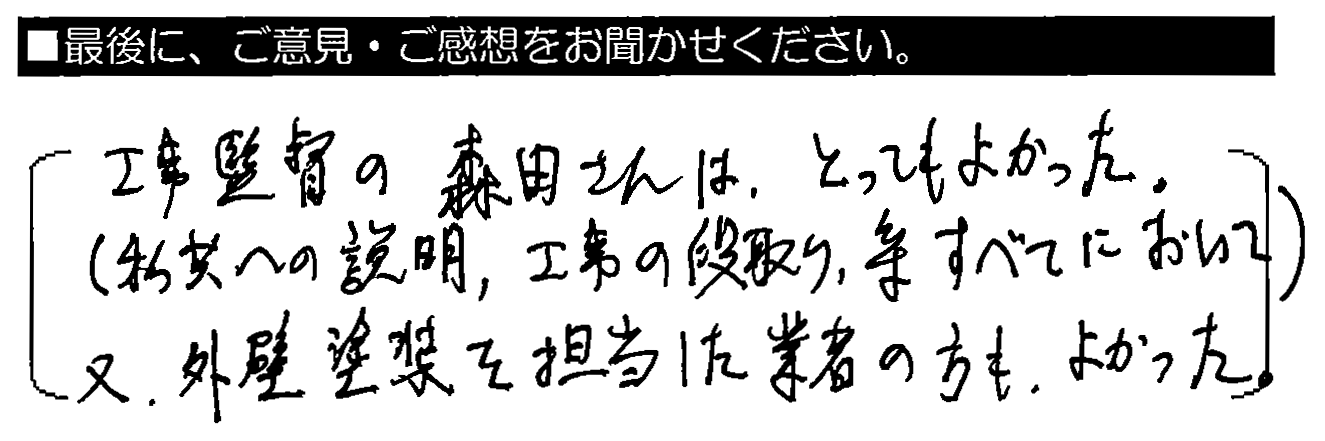 ■最後に、ご意見・ご感想をお聞かせください。
工事監督の森田さんは、とってもよかった。
(私共への説明、工事の段取り、等すべてにおいて)
又、外壁塗装を担当した業者の方も、よかった。